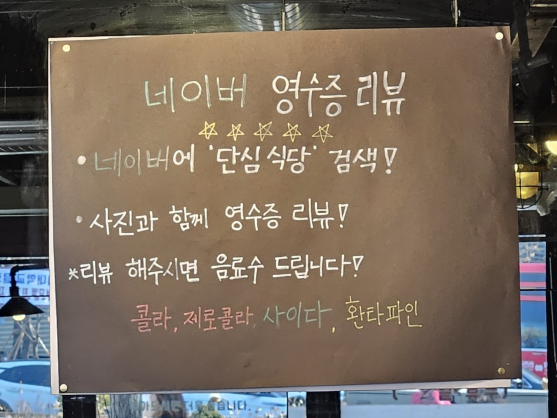 네이버 영수증 리뷰
• 네이버에 '단심식당' 검색!
• 사진과 함께 영수증 리뷰!
*리뷰 해주시면 음료수 드립니다!
콜라, 제로콜라, 사이다, 환타파인